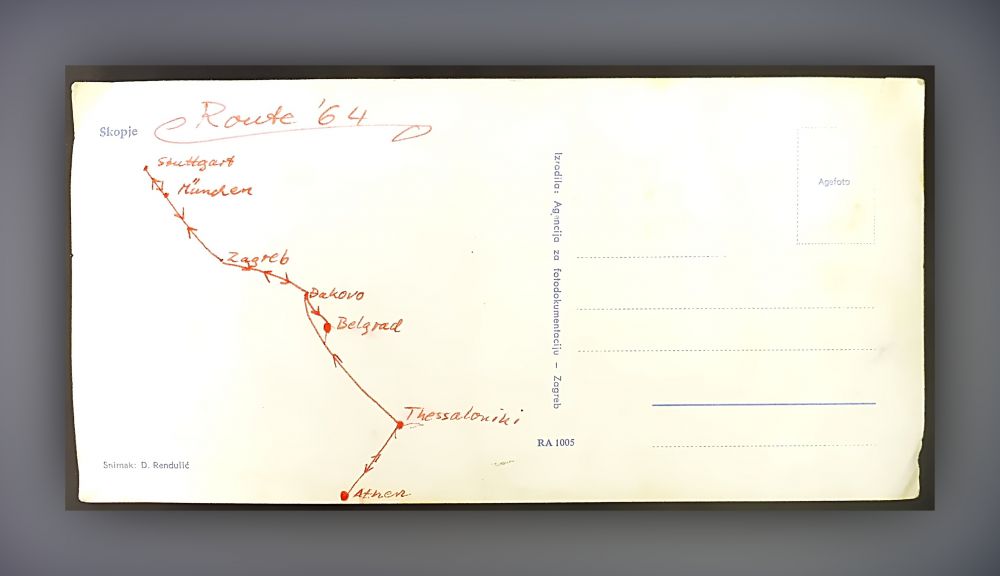 Skopje
Route '64
Stuttgart
München
Zagreb
Đakovo
Belgrad
Thessaloniki
Athen
Snimak: D. Rendulić
Izradila: Agencija za fotodokumentaciju – Zagreb
RA 1005
Agefoto